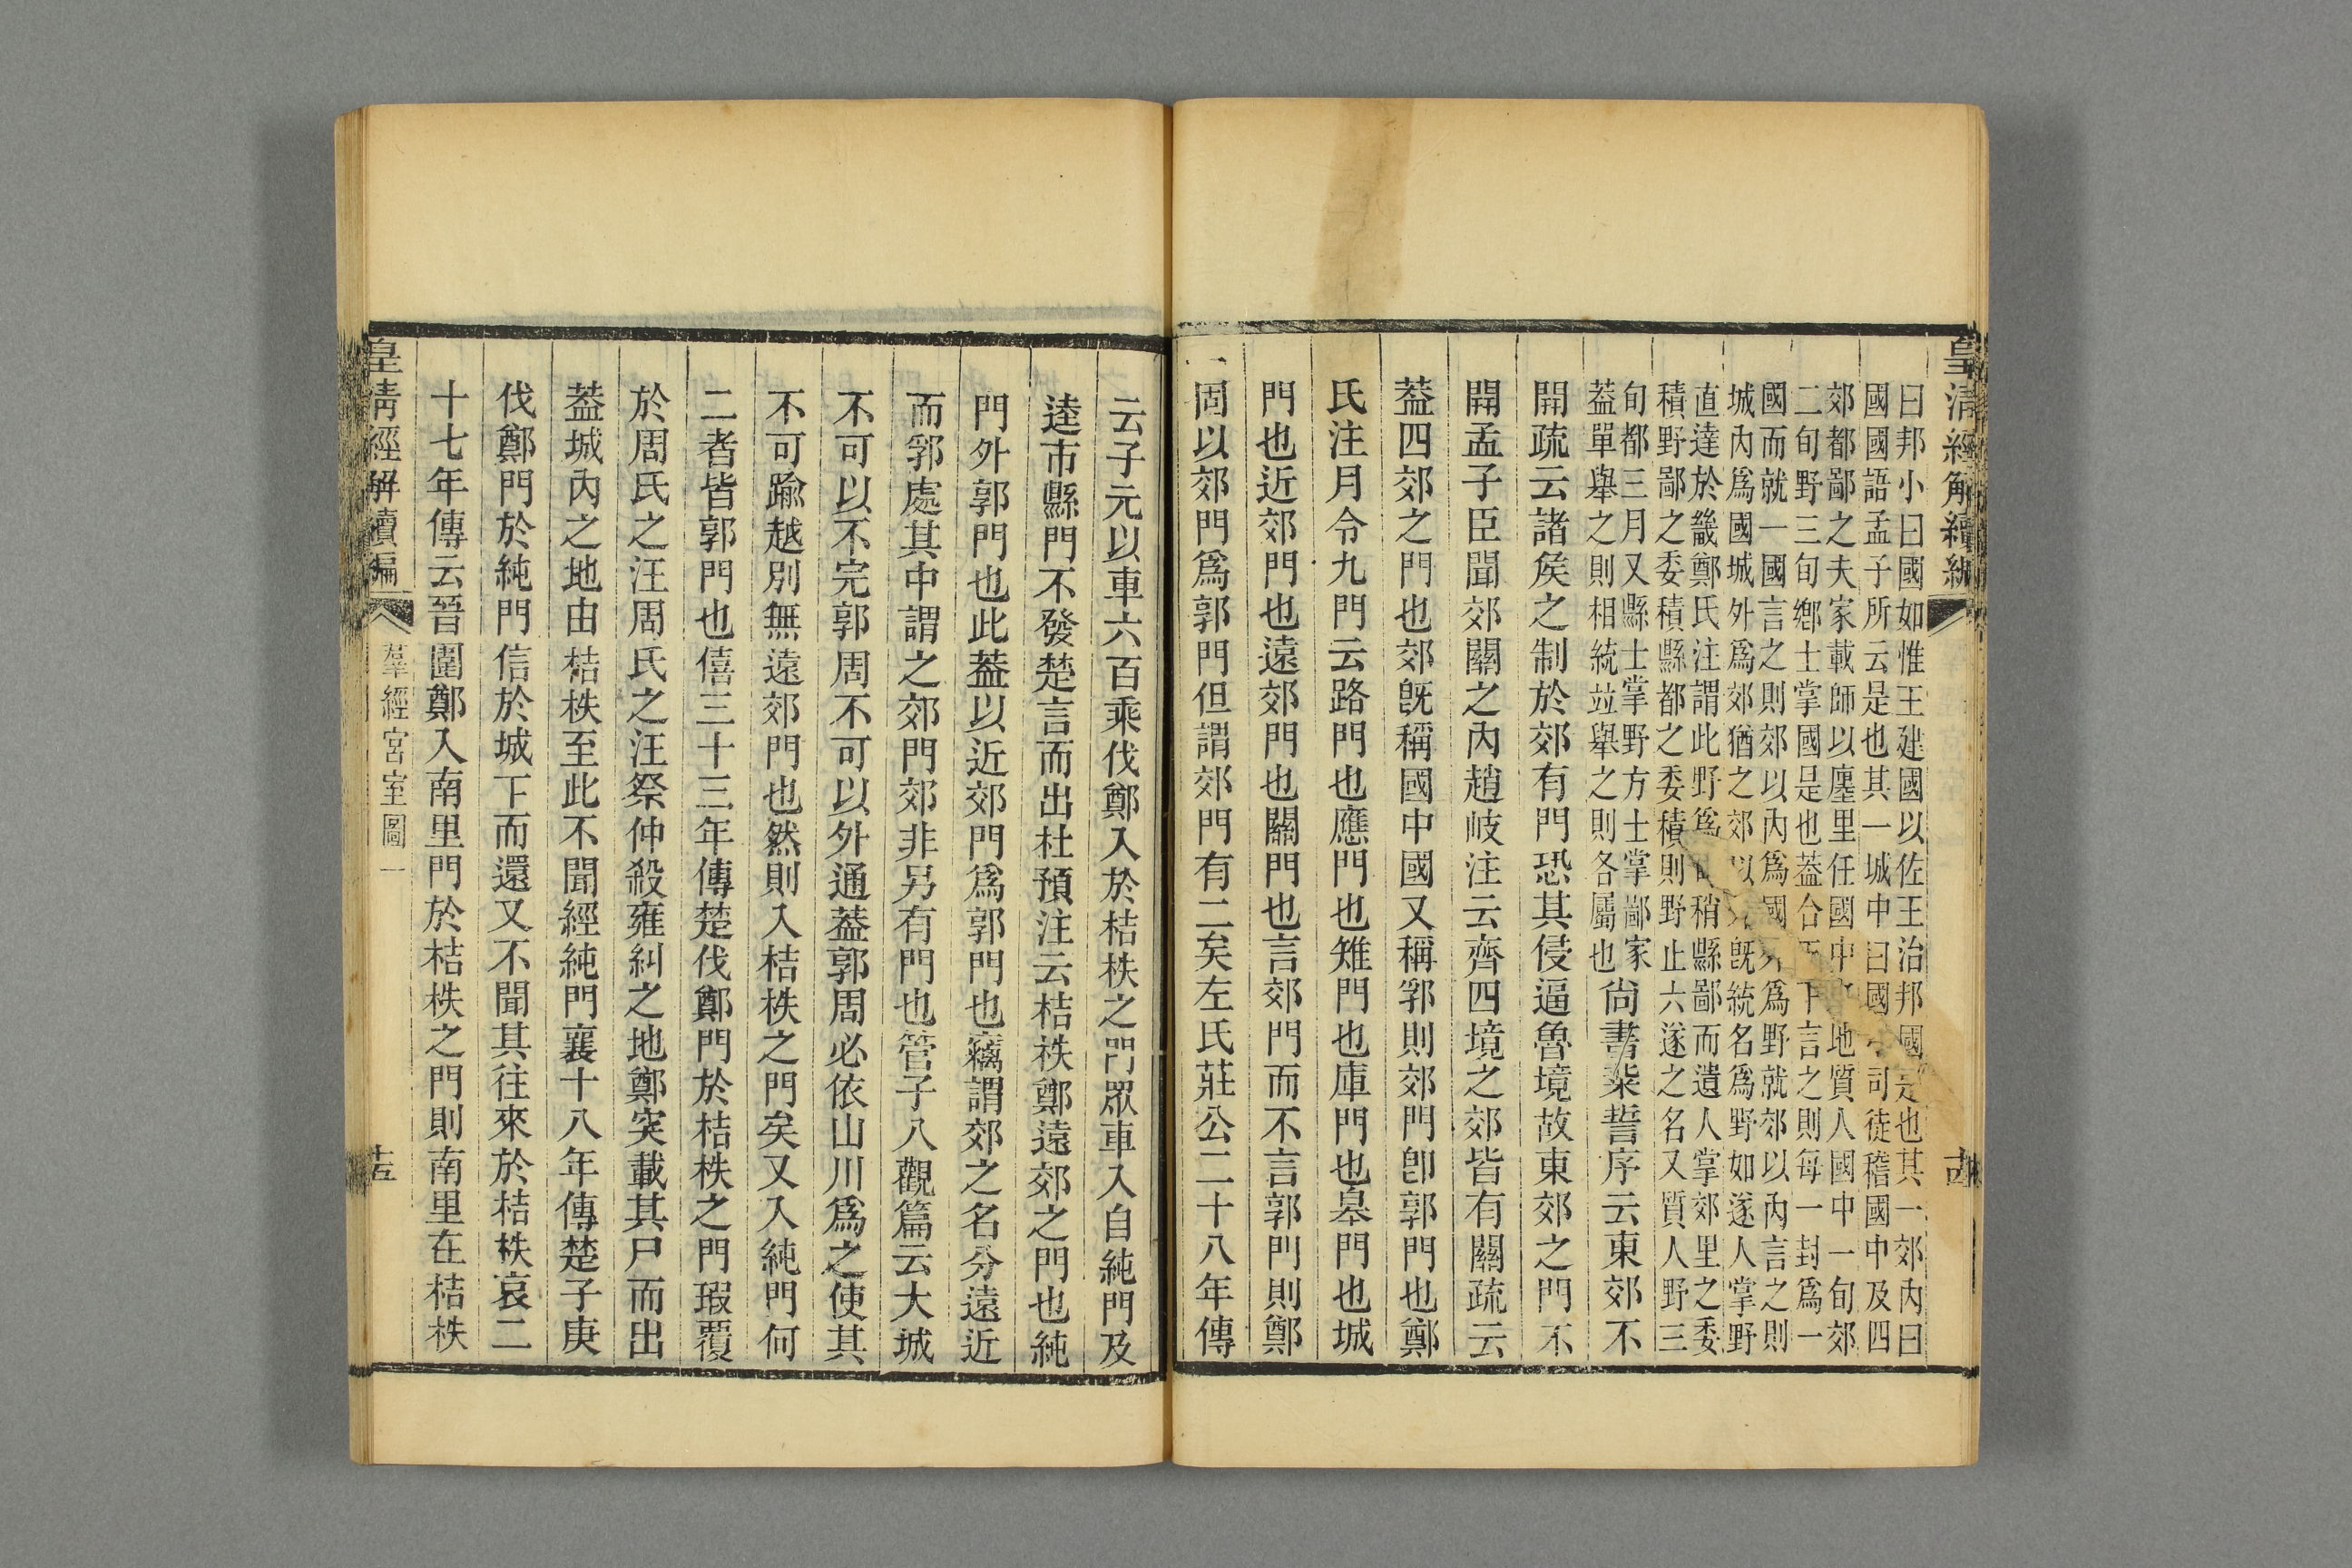 皇清經解續編
十四
曰邦小曰國如惟王建國以佐王治邦國是也其一郊內曰
國國語孟子所云是也其一城中曰國小司徒稽國中及四
郊都鄙之夫家載師以廛里任國中之地質人國中一旬郊
二旬野三旬鄉士掌國是也蓋合天下言之則每一封爲一
國而就一國言之則郊以內爲國外爲野就郊以內言之則
城內爲國城外爲郊猶之郊以外旣統名爲野如遂人掌野
直達於畿鄭氏注謂此野爲甸稍縣鄙而遺人掌郊里之委
積野鄙之委積縣都之委積則野止六遂之名又質人野三
旬都三月又縣士掌野方士掌鄙家
蓋單舉之則相統竝舉之則各屬也
尙書粊誓序云東郊不
開疏云諸矦之制於郊有門恐其侵逼魯境故東郊之門不
開孟子臣聞郊關之內趙岐注云齊四境之郊皆有關疏云
蓋四郊之門也郊旣稱國中國又稱郛則郊門卽郭門也鄭
氏注月令九門云路門也應門也雉門也庫門也皋門也城
門也近郊門也遠郊門也關門也言郊門而不言郭門則鄭
固以郊門爲郭門但謂郊門有二矣左氏莊公二十八年傳
云子元以車六百乘伐鄭入於桔柣之門眾車入自純門及
逵市縣門不發楚言而出杜預注云桔柣鄭遠郊之門也純
門外郭門也此蓋以近郊門爲郭門也竊謂郊之名分遠近
而郛處其中謂之郊門郊非另有門也管子八觀篇云大城
不可以不完郭周不可以外通蓋郭周必依山川爲之使其
不可踰越別無遠郊門也然則入桔柣之門矣又入純門何
二者皆郭門也僖三十三年傳楚伐鄭門於桔柣之門瑕覆
於周氏之汪周氏之汪祭仲殺雍糾之地鄭突載其尸而出
蓋城內之地由桔柣至此不聞經純門襄十八年傳楚子庚
伐鄭門於純門信於城下而還又不聞其往來於桔柣哀二
十七年傳云晉圍鄭入南里門於桔柣之門則南里在桔柣
皇清經解續編
羣經宮室圖一
十五